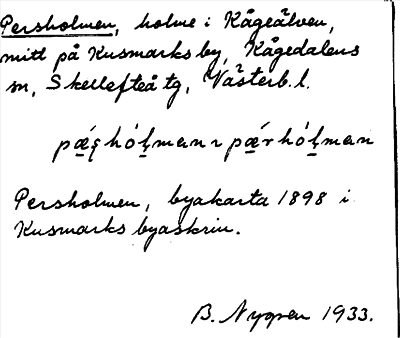 Persholmen, holme i Kågeälven,
mitt på Kusmarks by, Kågedalens
sn, Skellefteå tg, Västerb. l.
pǽʂhóḷman ɿ pǽrhóḷman
Persholmen, byakarta 1898 i
Kusmarks byaskrin.
B. Nygren 1933.